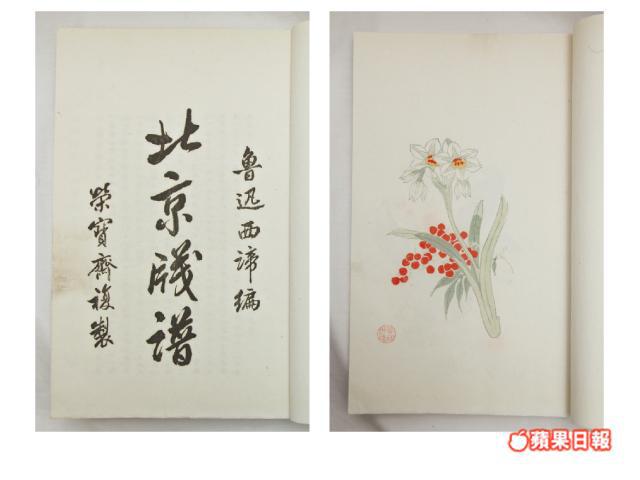 魯迅西諦編
北京牋譜
榮寶齋複製
蘋果日報